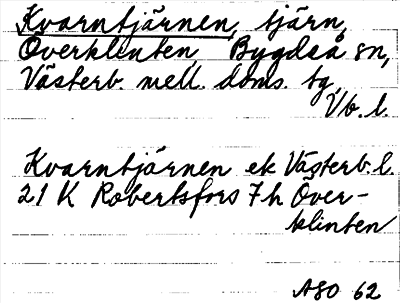 Kvarntjärnen, tjärn,
Överklinten, Bygdeå sn,
Västerb. mell. doms. tg,
Vb. l.
Kvarntjärnen ek Västerb. l.
21 K Robertsfors 7h Över-
klinten
ASO 62